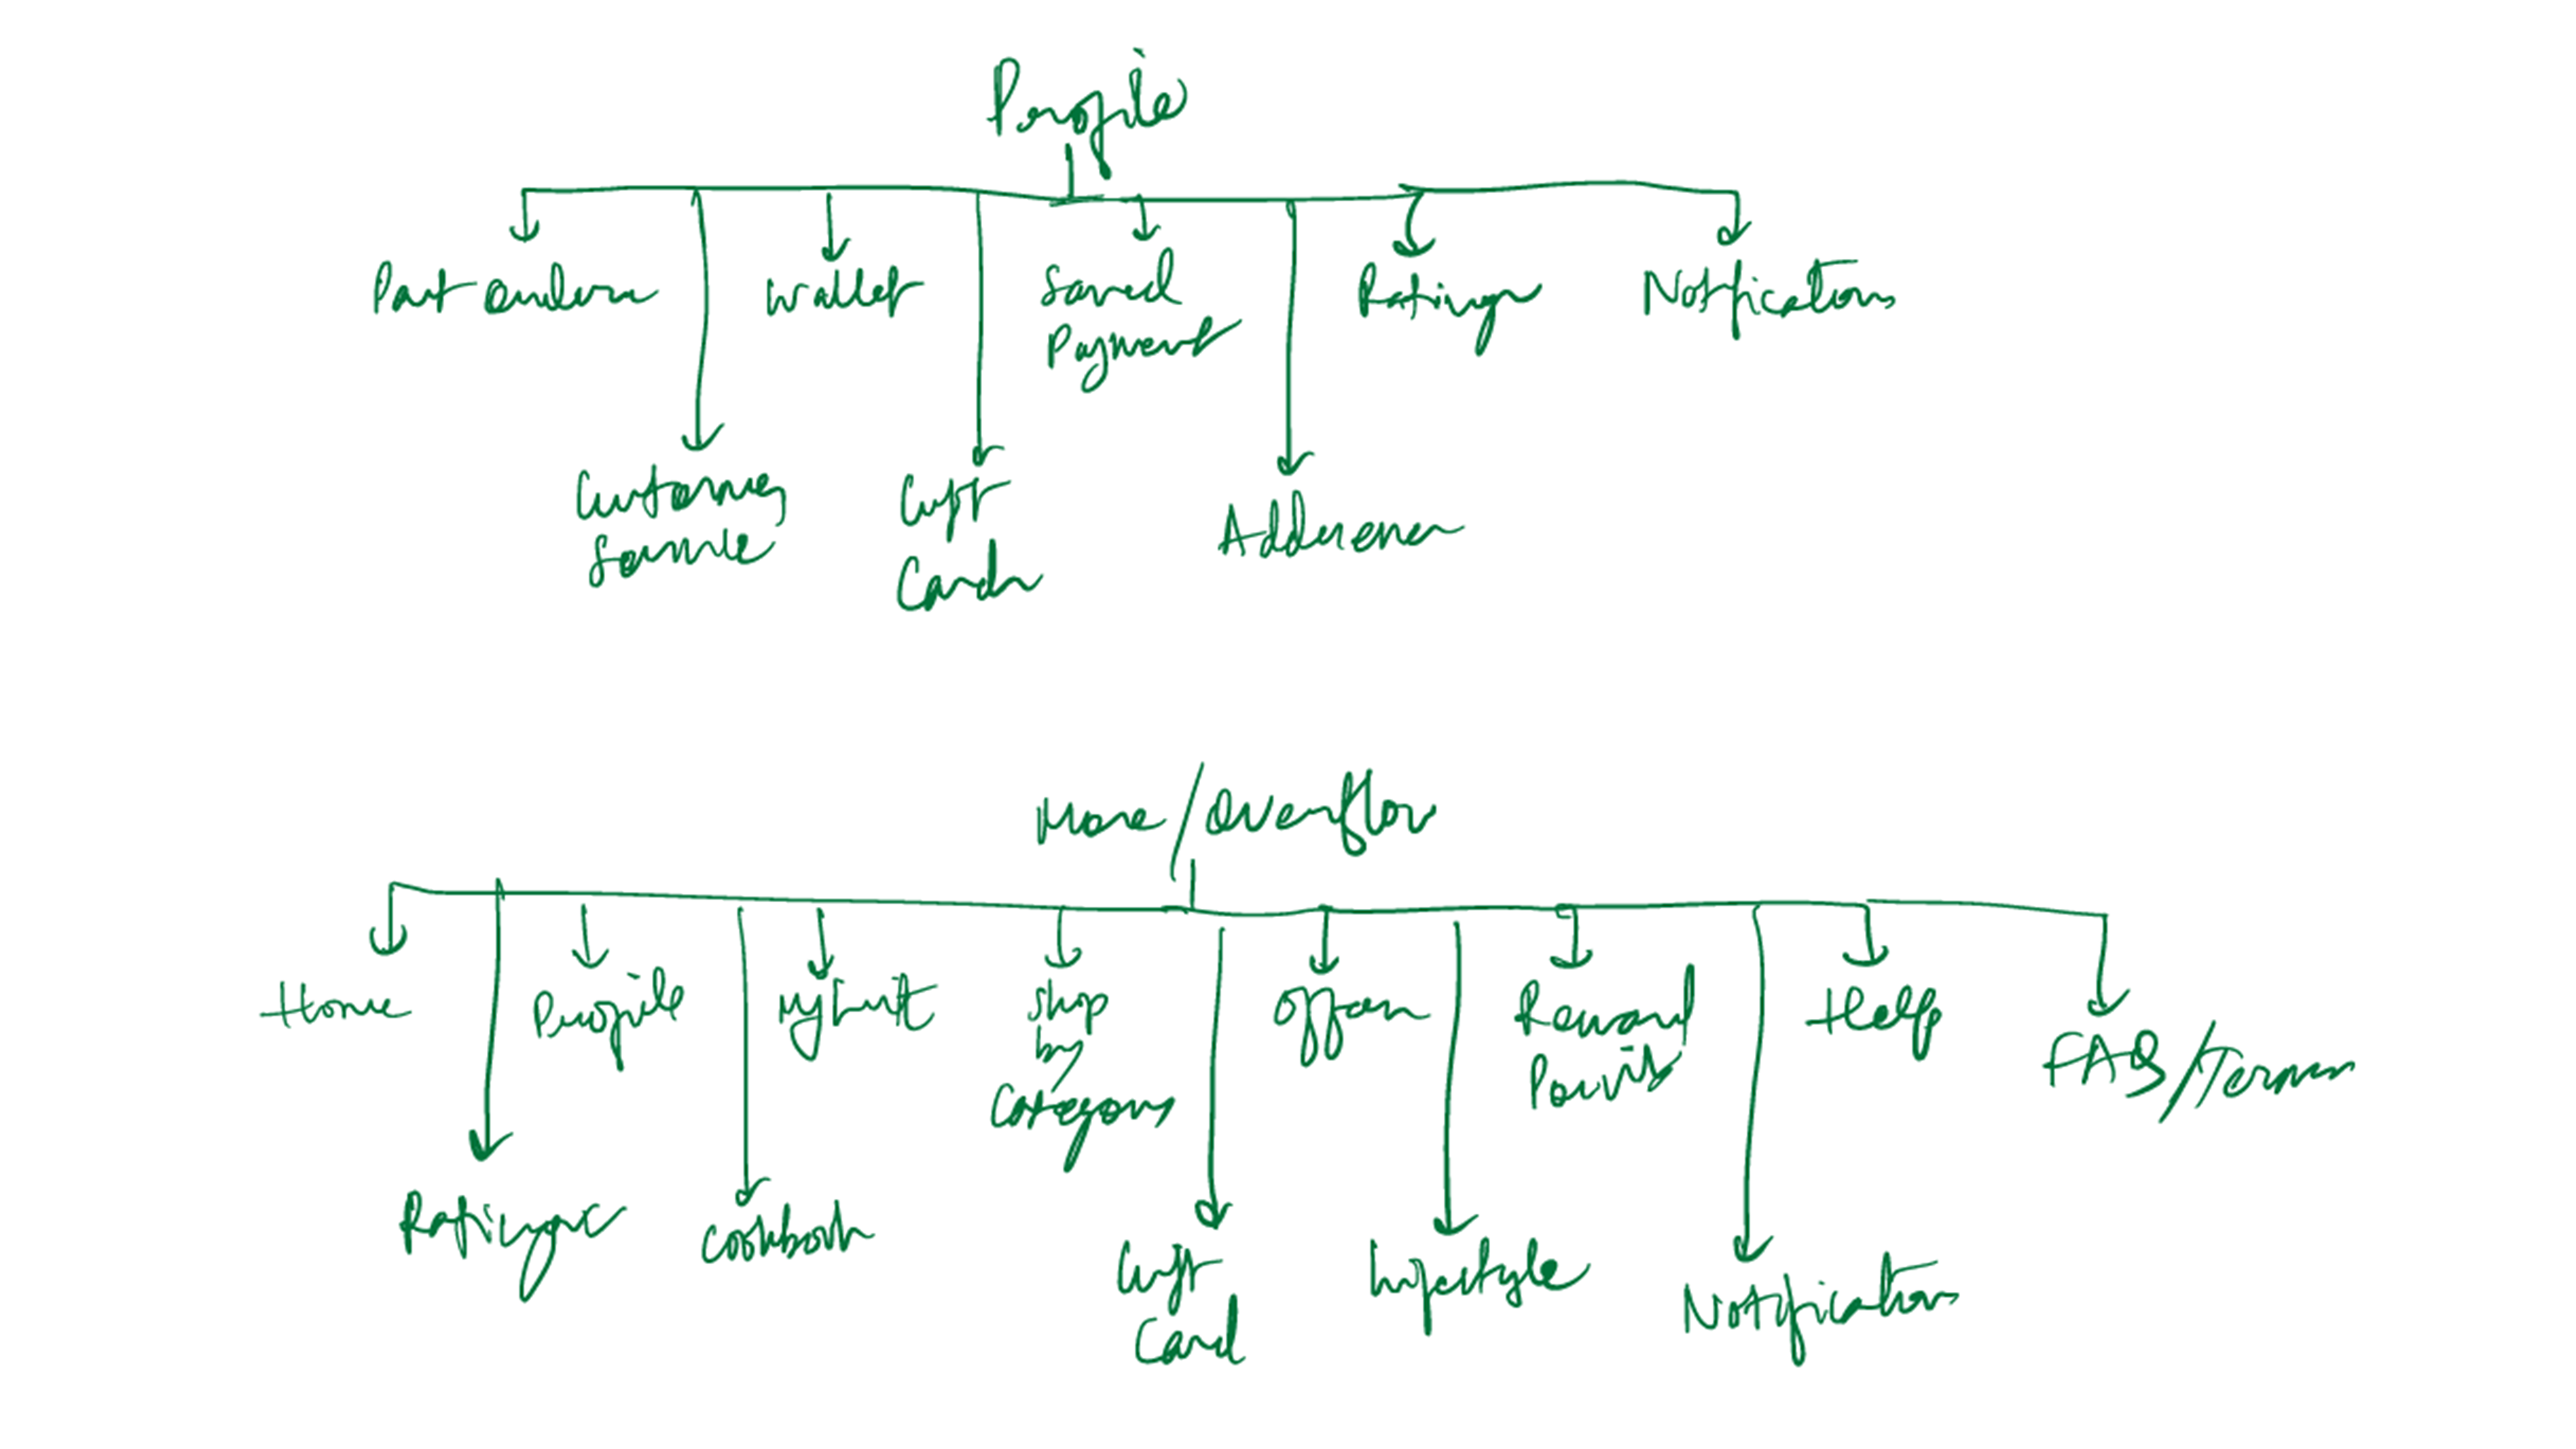 Profile
Past orders
Wallet
Saved
Payment
Ratings
Notifications
Customer
Service
Gift
Cards
Addresses
More/Overflow
Home
Profile
My List
Shop
by
Category
Offers
Reward
Points
Help
FAQ/Terms
Ratings
Cookbook
Gift
Card
Lifestyle
Notification